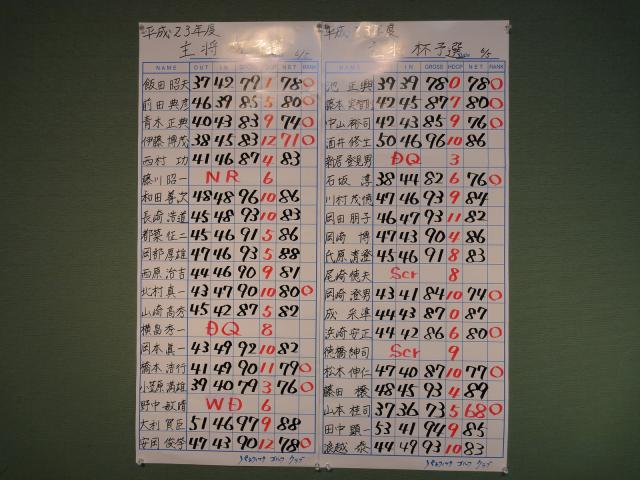 平成23年度
主将 予選 6/5
NAME OUT IN GROSS HDCP NET RANK
飯田昭夫 37 42 79 1 78 ○
前田典彦 46 39 85 5 80 ○
青木正典 40 43 83 9 74 ○
伊藤博茂 38 45 83 12 71 ○
西村功 41 46 87 4 83
藤川昭一 NR 6
和田善次 48 48 96 10 86
長崎浩道 45 48 93 10 83
都築征二 45 46 91 5 86
岡部厚雄 47 46 93 5 88
西原治吉 44 46 90 9 81
北村真一 43 47 90 10 80 ○
山崎高秀 45 42 87 5 82
横畠秀一 DQ 8
岡本真一 43 49 92 10 82
橋本浩行 41 49 90 11 79 ○
小笠原満雄 39 40 79 3 76 ○
野中敏晴 WD 6
大利賀臣 51 46 97 9 88
安岡俊学 47 43 90 12 78 ○
平成23年度
杯予選 6/5
NAME IN GROSS HDCP NET RANK
池正興 39 39 78 0 78 ○
藤本実智 42 45 87 7 80 ○
中山裕司 42 43 85 9 76 ○
酒井修士 50 46 96 10 86
新居登見男 DQ 3
石坂淳 38 44 82 6 76 ○
川村茂慎 47 46 93 9 84
岡田朋子 46 47 93 11 82
岡崎博 47 43 90 4 86
氏原清澄 45 46 91 8 83
尾崎倭夫 Scr 8
岡崎澄男 43 41 84 10 74 ○
成采準 44 43 87 0 87
浜崎安正 44 42 86 6 80 ○
徳橋紳司 Scr 9
松木伸仁 47 40 87 10 77 ○
藤田穣 48 45 93 4 89
山本桂司 37 36 73 5 68 ○
田中顕一 53 41 94 9 85
浪越泰 44 49 93 10 83
ゴルフ クラブ
ゴルフ クラブ